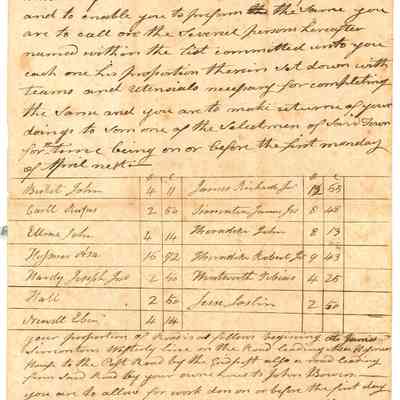 and to enable you to preform the the same you
are to call on the Several persons hereafter
named within the List committed unto you
each one his proportion therein set down with
teams and utensials necessary for completing
the Same and you are to make return of your
doings to Som one of the Selectmen of Said Town
for time being on or before the first monday
of April next
Becket John 4 11 James Richards Jr 13 55
Carll Rufus 2 50 Simonton James Jr 8 48
Ellms John 4 14 Thorndike John 8 13
Hosmer Asa 16 92 Thorndike Robert Jr 9 43
Hardy Joseph Jr 2 50 Wentworth Tobias 4 25
Hall 2 50 Jesse Joslin 2 50
Newell Eben 4 14
your proportion of Roads is as follows begining at James
Simontons Westerly line on the Road leading Hosmer
House to the Post Road by the also a road leading
from Said Road by your own house to John Bowers
you are to allow for work don on or before the first day